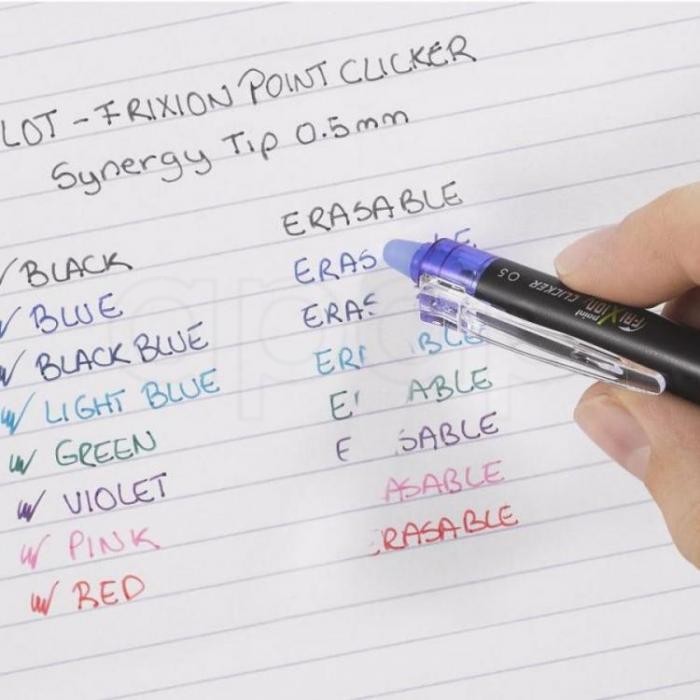 LOT - FRIXION POINT CLICKER
Synergy Tip 0.5mm
ERASABLE
BLACK ERAS LE
BLUE ERAS
BLACK BLUE ER BLE
LIGHT BLUE E ABLE
GREEN E SABLE
VIOLET ASABLE
PINK RASABLE
RED
point
FRIXION CLICKER 05